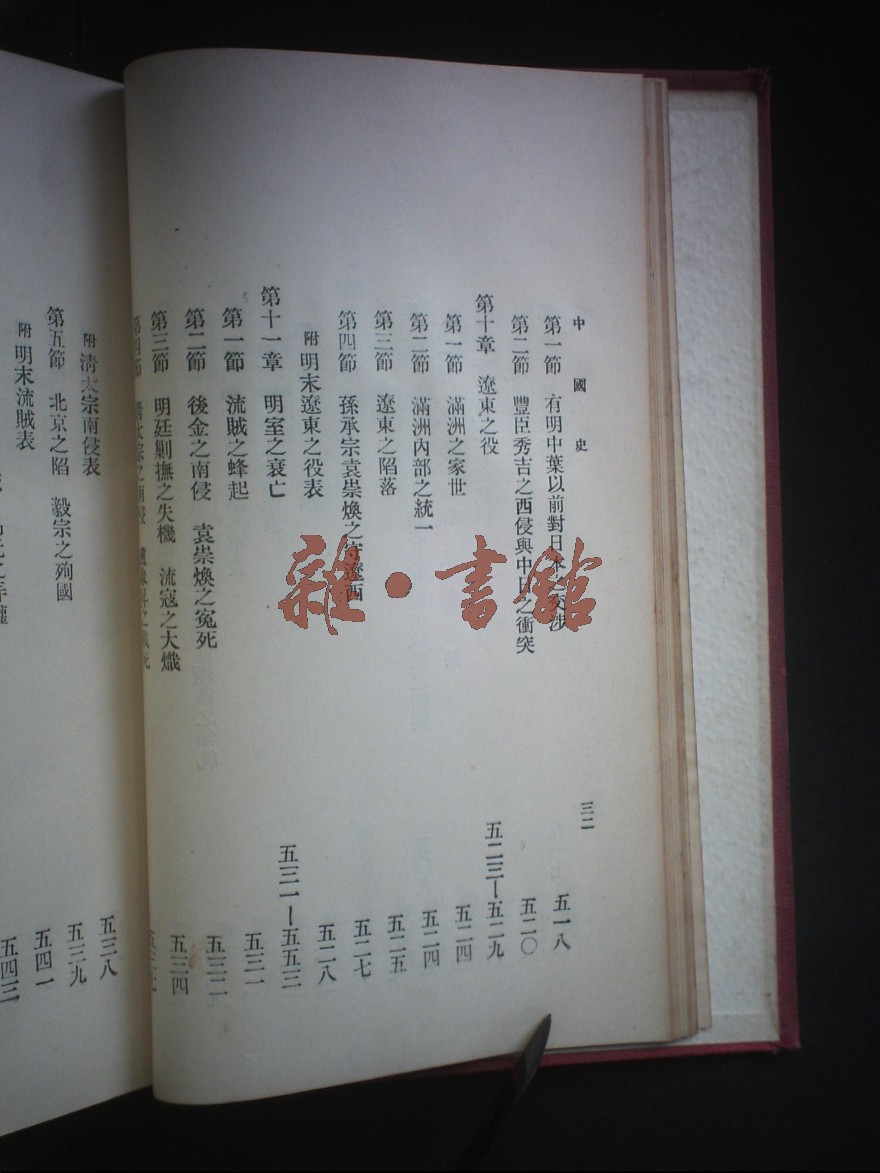 中國史
三二
第一節 有明中葉以前對日本之交涉 五一八
第二節 豐臣秀吉之西侵與中日之衝突 五二〇
第十章 遼東之役 五二三—五二九
第一節 滿洲之家世 五二四
第二節 滿洲內部之統一 五二四
第三節 遼東之陷落 五二五
第四節 孫承宗袁崇煥之守遼西 五二七
附 明末遼東之役表 五二八
第十一章 明室之衰亡 五三一—五五三
第一節 流賊之蜂起 五三一
第二節 後金之南侵 袁崇煥之冤死 五三二
第三節 明廷剿撫之失機 流寇之大熾 五三四
第四節 清太宗之南侵
附 清太宗南侵表 五三八
第五節 北京之陷 毅宗之殉國 五三九
附 明末流賊表 五四一
五四三
雜·書館